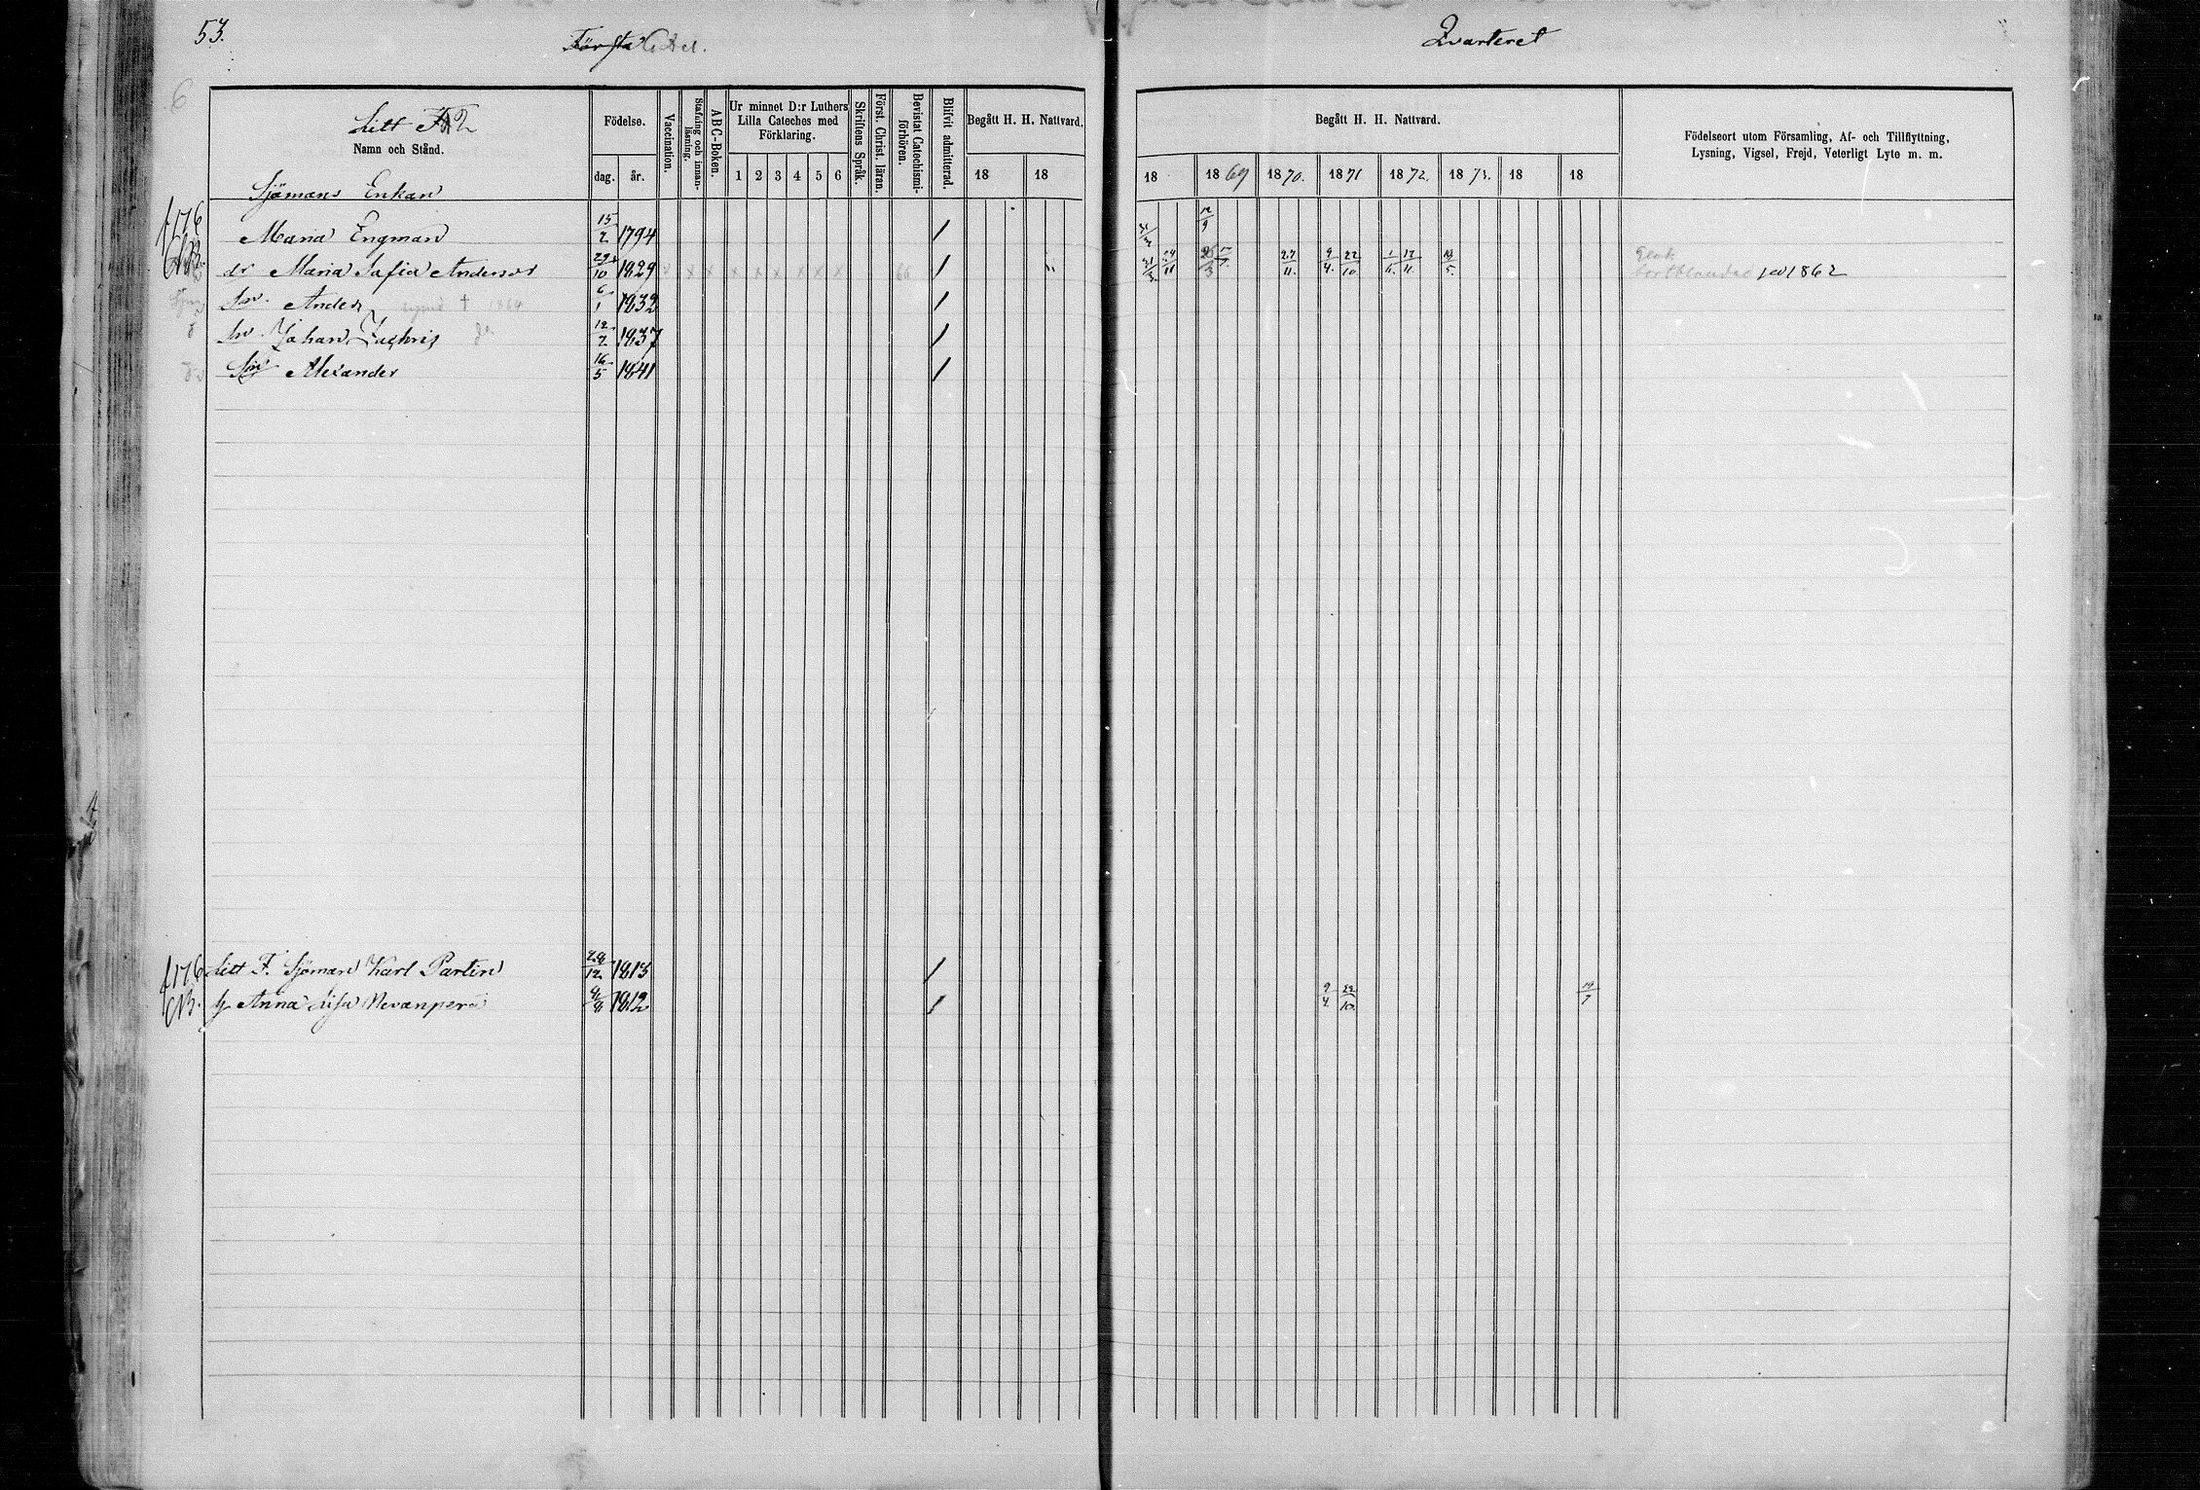 53.
Första Qvarteret
6
Litt F
Namn och Stånd.
Födelse.
dag. år.
Vaccination.
Stafning och innanläsning.
ABC-Boken.
Ur minnet D:r Luthers
Lilla Cateches med
Förklaring.
1 2 3 4 5 6
Skriftens Språk.
Först. Christ. läran.
Bevistat Catechismiförhören.
Blifvit admitterad.
Begått H. H. Nattvard.
18 18
Begått H. H. Nattvard.
18 1869 1870. 1871 1872. 1873. 18 18
Födelseort utom Församling, Af- och Tillflyttning,
Lysning, Vigsel, Frejd, Veterligt Lyte m. m.
Sjömans Enkan
f 176
Maria Engman 15/2 1794 /
dr Maria Safia 29/10 1829 x x x x x x x x / 27/11. 9/4. 22/10. 1862
Sn. Anders † 1864 6/1 1832 /
Sn. Johan Zachris 12/7 1837 /
Sn Alexander 16/5 1841 /
f 176 Litt F. Sjöman Karl Partin 28/12 1813 /
h Anna Lisa Nevanperä 1812 / 9/4 22/10.